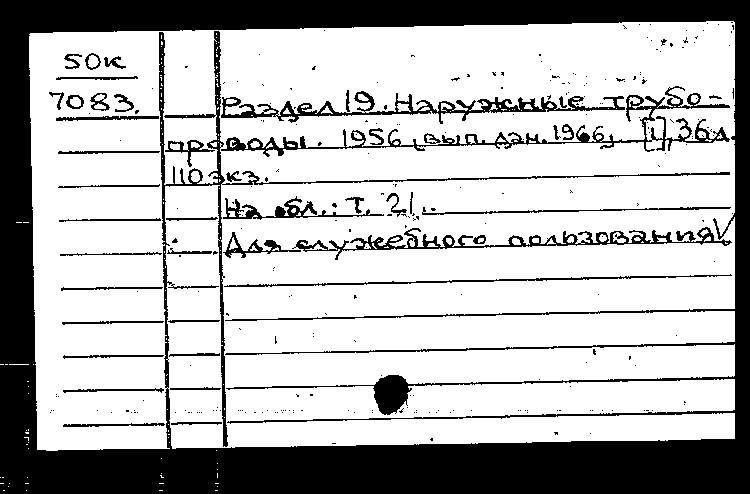 50к
7083.
Раздел 19. Наружные трубо-
проводы. 1956, вып. дан. 1966, [1], 36 л.
110 экз.
На обл.: Т. 21..
Для служебного пользования